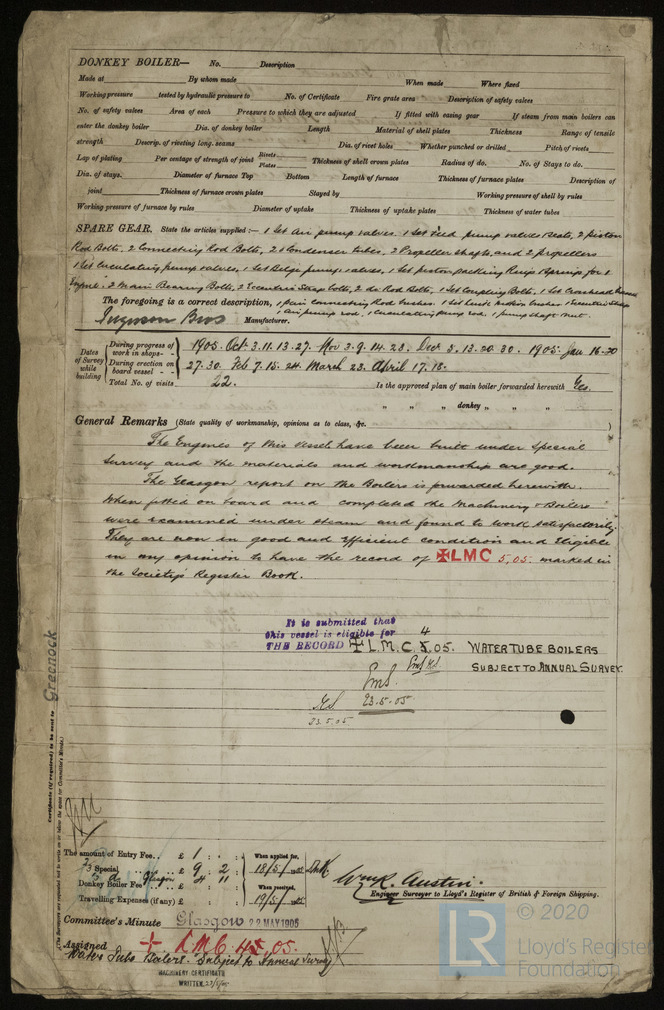 DONKEY BOILER— No. Description
Made at By whom made When made Where fixed
Working pressure tested by hydraulic pressure to No. of Certificate Fire grate area Description of safety valves
No. of safety valves Area of each Pressure to which they are adjusted If fitted with easing gear If steam from main boilers can
enter the donkey boiler Dia. of donkey boiler Length Material of shell plates Thickness Range of tensile
strength Descrip. of riveting long. seams Dia. of rivet holes Whether punched or drilled Pitch of rivets
Lap of plating Per centage of strength of joint Rivets Plates Thickness of shell crown plates Radius of do. No. of Stays to do.
Dia. of stays. Diameter of furnace Top Bottom Length of furnace Thickness of furnace plates Description of
joint Thickness of furnace crown plates Stayed by Working pressure of shell by rules
Working pressure of furnace by rules Diameter of uptake Thickness of uptake plates Thickness of water tubes
SPARE GEAR. State the articles supplied:— 1 Set Air pump valves. 1 Set Feed pump valves & Seats, 2 Piston
Rod Bolts, 2 Connecting Rod Bolts, 2 Condenser tubes, 2 Propeller shafts, and 2 propellers
1 Set Circulating pump valves, 1 Set Bilge pump valves, 1 Set piston packing Rings & Springs for 1
Engine. 2 Main Bearing Bolts, 2 Eccentric Strap bolts, 2 do Rod Bolts, 1 Set Coupling Bolts, 1 Set Crosshead
The foregoing is a correct description, 1 pair Connecting Rod bushes. 1 Set bushes, 1 Eccentric Strap
1 Air pump rod, 1 Circulating pump rod, 1 pump shaft nut.
Ferguson Bros Manufacturer.
Dates of Survey while building
During progress of work in shops-- 1905. Oct. 3. 11. 13. 27. Nov 3. 9. 14. 23. Dec 5. 13. 20. 30. 1905. Jan 16. 20
During erection on board vessel-- 27. 30. Feb 7. 15. 24. March 23. April 17. 18.
Total No. of visits 22. Is the approved plan of main boiler forwarded herewith Yes.
" " " donkey " " "
General Remarks (State quality of workmanship, opinions as to class, &c.
The Engines of this vessel have been built under Special
Survey and the materials and workmanship are good.
The Glasgow report on the Boilers is forwarded herewith.
When fitted on board and completed the Machinery & Boilers
were examined under steam and found to work satisfactorily.
They are now in good and efficient condition and eligible
in my opinion to have the record of ✠LMC 5.05. marked in
the Society's Register Book.
It is submitted that
this vessel is eligible for
THE RECORD ✠ L.M.C. 5.05. WATER TUBE BOILERS
4
SUBJECT TO ANNUAL SURVEY.
23.5.05
23.5.05
Certificate (if required) to be sent to Greenock
(The Surveyors are requested not to write on or below the space for Committee's Minute.)
The amount of Entry Fee.. £ 1 : : When applied for,
Special £ 9 : 2 : 18/5/05
Glasgow
Donkey Boiler Fee £ 4 : 11 : When received,
Travelling Expenses (if any) £ : : 19/5/05
Wm R. Austin.
Engineer Surveyor to Lloyd's Register of British & Foreign Shipping.
Committee's Minute Glasgow 22 MAY 1905
Assigned + L.M.C. 4.05.
Water Tube Boilers. Subject to Annual Survey
MACHINERY CERTIFICATE
WRITTEN
LR © 2020
Lloyd's Register
Foundation